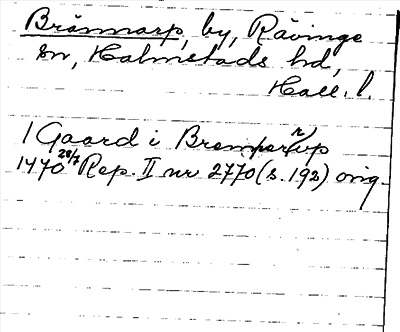 Brännarp, by, Rävinge
sn, Halmstads hd,
Hall. l.
1 Gaard i Bremperup
1470 28/7 Rep. II nr 2770 (s. 192) orig.